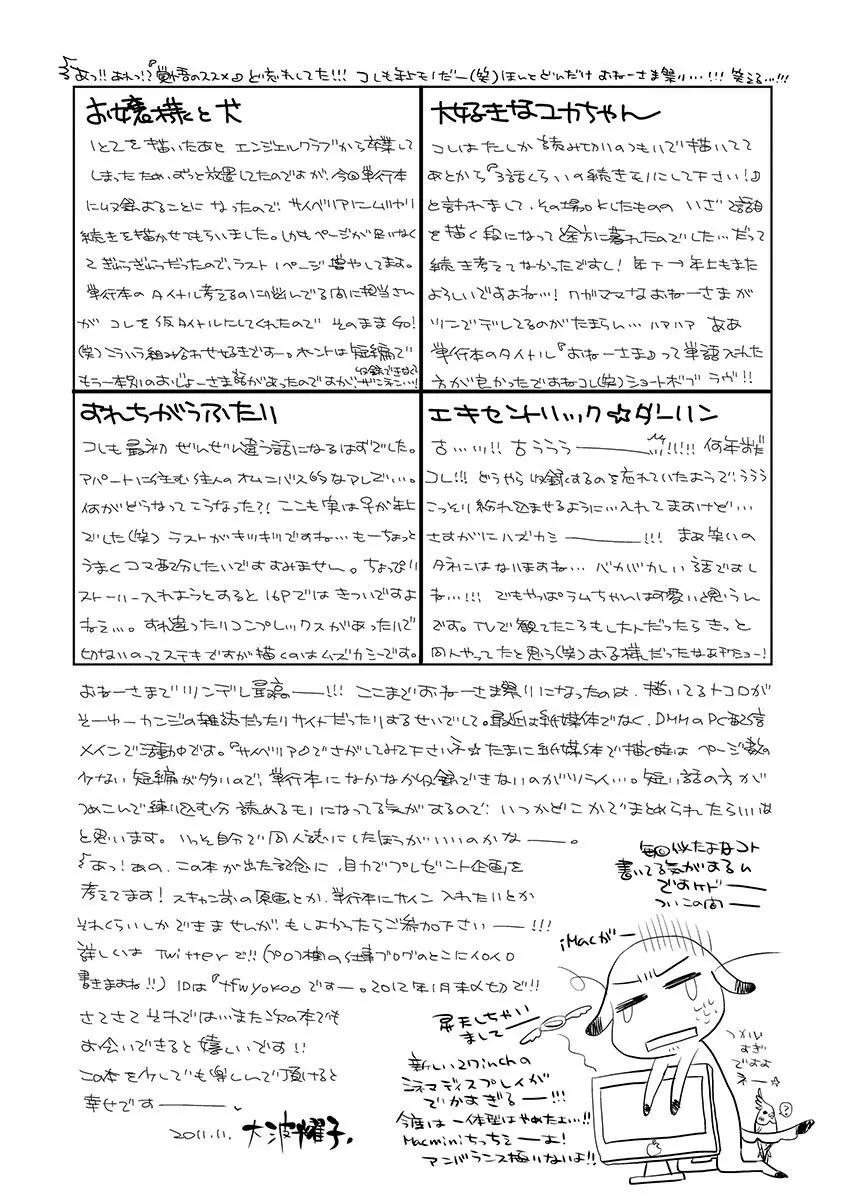 あっ!! あれっ!?『覚悟のススメ』ど忘れしてた!!! コレも年上モノだー(笑)ほんとどんだけ おねーさま祭り…!!! 笑える…!!!
お嬢様と犬
1と2を描いたあと エンジェルクラブから卒業して
しまったため、ずっと放置してたのですが、今回単行本
に収録することに なったので、サイベリアにムリヤリ
続きを描かせてもらいました。しかもページが足りなく
てぎゅうぎゅうだったので、ラスト1ページ増やしてます。
単行本のタイトル考えるのに悩んでる間に担当さん
が コレを仮タイトルにしてくれたので そのままGO!
(笑)こういう組み合わせ好きですー。ホントは短編で
もう一本別のおじょーさま話があったのですが、収録できなくてザンネン…!
大好きなユカちゃん
コレはたしか読み切りのつもりで描いてて
あとから『3話くらいの続きモノにして下さい!』
と言われまして、その場でOKとしたものの いざ2話目
を描く段になって途方に暮れたのでした…だって
続き考えてなかったですし! 年下→年上もまた
よろしいですよね…! ワガママなおねーさまが
ツンでデレしてるのがたまらん… ハァハァ ああ
単行本のタイトル『おねーさま』って単語入れた
方が良かったですねコレ(笑)ショートボブ ラヴ!!
すれちがうふたり
コレも最初 ぜんぜん違う話になるはずでした。
アパートに住む住人のオムニバス的なアレでい…。
何がどうなってこうなった?! ここも実は♀が年上
でした(笑) ラストがキツキツですね… もーちょっと
うまくコマ配分したいですすみません。ちょっぴり
ストーリー入れようとすると16Pではきついですよ
ねぇ…。すれ違ったりコンプレックスがあったりで
切ないのってステキですが描くのはムズカシーです。
エキセントリック☆ダーリン
古…ッ!! 古ううう───ッ!!!!! 何年前だ
コレ!!! どうやら収録するのを忘れていたようで、ううう
こっそり紛れ込ませるように…入れてますけど…
さすがにハズカシ────!!! まぁ笑いの
タネにはなりますね… バカバカしい話ですし
ね…!!! でもやっぱラムちゃんは可愛いと思うん
です。TVで観てたころもし大人だったらきっと
同人やってたと思う(笑)
おねーさまでツンデレ最高の──!!! ここまでおねーさま祭りになったのは、描いてるトコロが
そーゆーカンジの雑誌だったりサイトだったりするせいでして。最近は紙媒体でなく、DMMのPC配信
メインで活動中です。『サイベリア』でさがしてみて下さいネ☆ たまに紙媒体で描く時は ページ数の
少ない短編が多いので、単行本になかなか収録できないのがツライ…。短い話の方が
つめこんで練り込む分 読めるモノになってる気がするので、いつかどこかでまとめられたらいいな
と思います。いっそ自分で同人誌にしたほうがいいのかな──。
あっ!あの、この本が出た記念に、自力でプレゼント企画を
考えてます! スキャン前の原画とか、単行本にサイン入れたいとか
それくらいしかできませんが、もしよかったらご参加下さい──!!!
詳しくは Twitterで!!(プロフ欄の仕事ブログのとこにイロイロ
書きますね!!) IDは『tfwyoko』ですー。2012年1月末〆切で!!
さてさて それでは…また次の本でも
お会いできると嬉しいです!!
この本を少しでも楽しんで頂けると
幸せです────。
2011.11. 大波耀子。
毎回似たよなコト
書いてる気がするん
ですけど──
ついこの間──
iMacが──
昇天しちゃい
まして──
新しい27inchの
シネマディスプレイが
でかすぎる──!!!
今度は一体型はやめたよ…!!
Macminiちっちぇーよ!
アンバランス極りないよ!!
つめが
すぎ
ですよ
ネー☆
?